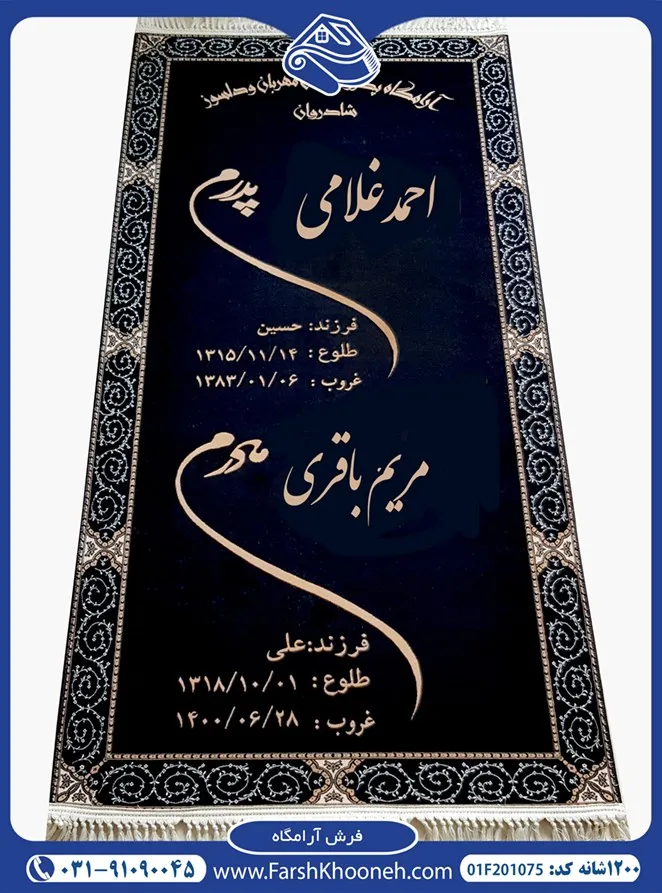 آرامگاه مهربان و دلسوز
شادروان
احمد غلامی پدرم
فرزند: حسین
طلوع : ۱۳۱۵/۱۱/۱۴
غروب : ۱۳۸۳/۰۱/۰۶
مریم باقری مادرم
فرزند:علی
طلوع : ۱۳۱۸/۱۰/۰۱
غروب : ۱۴۰۰/۰۶/۲۸
فرش آرامگاه
۱۲۰۰شانه کد: 01F201075 www.FarshKhooneh.com ۰۳۱-۹۱۰۹۰۰۴۵